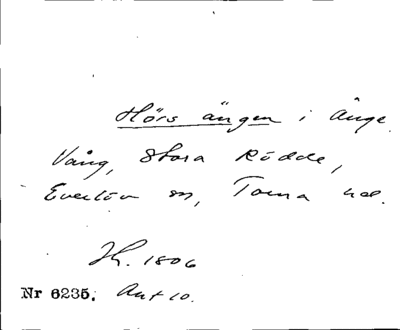 Hörs ängen i Ånge
Vång, Stora Rödde,
Everlöv sn, Torna hd.
Jh. 1806
Nr 6235. Akt 10.